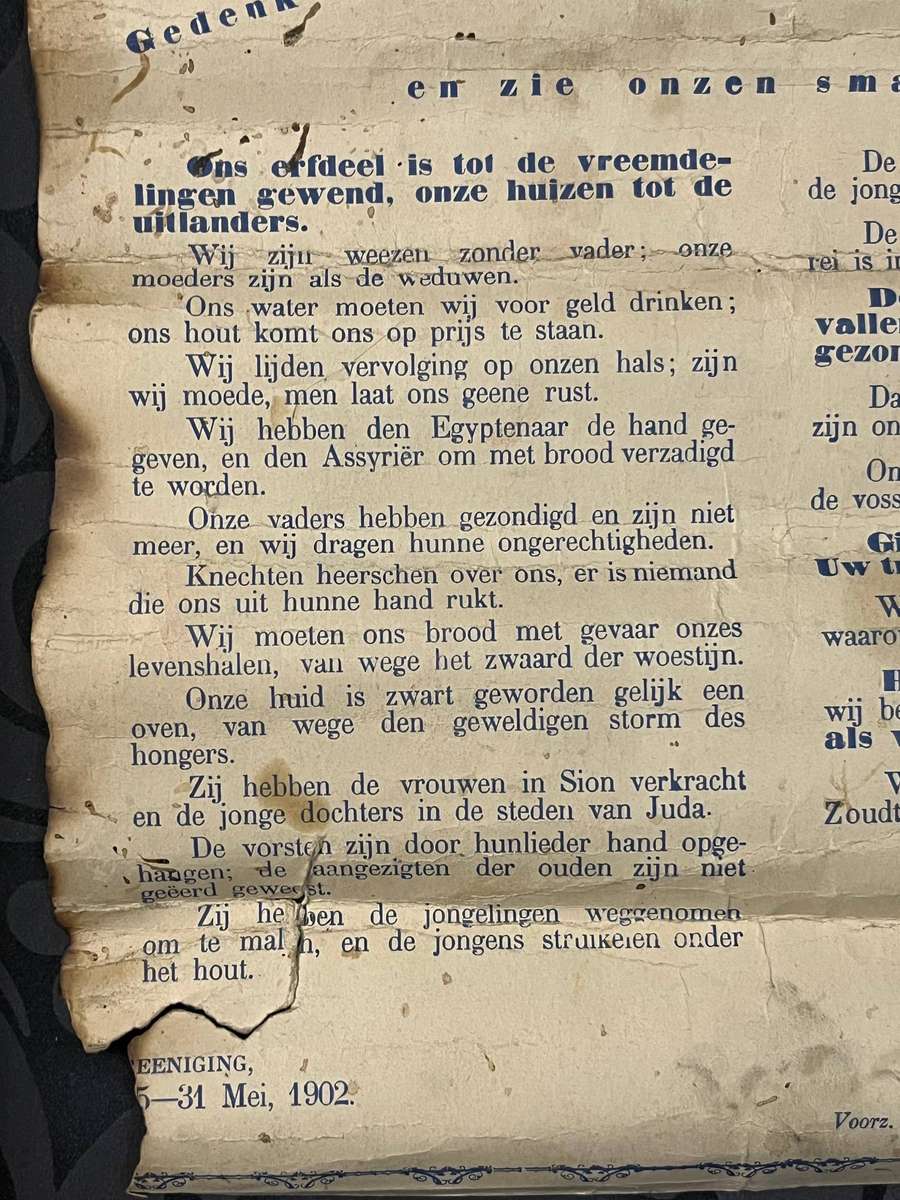 Gedenk
en zie onzen sma
Ons erfdeel is tot de vreemde-
lingen gewend, onze huizen tot de
uitlanders.
Wij zijn weezen zonder vader; onze
moeders zijn als de weduwen.
Ons water moeten wij voor geld drinken;
ons hout komt ons op prijs te staan.
Wij lijden vervolging op onzen hals; zijn
wij moede, men laat ons geene rust.
Wij hebben den Egyptenaar de hand ge-
geven, en den Assyriër om met brood verzadigd
te worden.
Onze vaders hebben gezondigd en zijn niet
meer, en wij dragen hunne ongerechtigheden.
Knechten heerschen over ons, er is niemand
die ons uit hunne hand rukt.
Wij moeten ons brood met gevaar onzes
levenshalen, van wege het zwaard der woestijn.
Onze huid is zwart geworden gelijk een
oven, van wege den geweldigen storm des
hongers.
Zij hebben de vrouwen in Sion verkracht
en de jonge dochters in de steden van Juda.
De vorsten zijn door hunlieder hand opge-
hangen; de aangezigten der ouden zijn niet
geëerd geweest.
Zij hebben de jongelingen weggenomen
om te mal n, en de jongens struikelen onder
het hout.
EENIGING,
5—31 Mei, 1902.
De
de jong
De
rei is i
De
valle
gezon
Da
zijn on
On
de voss
Gi
Uw t
W
waaro
H
wij be
als v
W
Zoudt
Voorz.